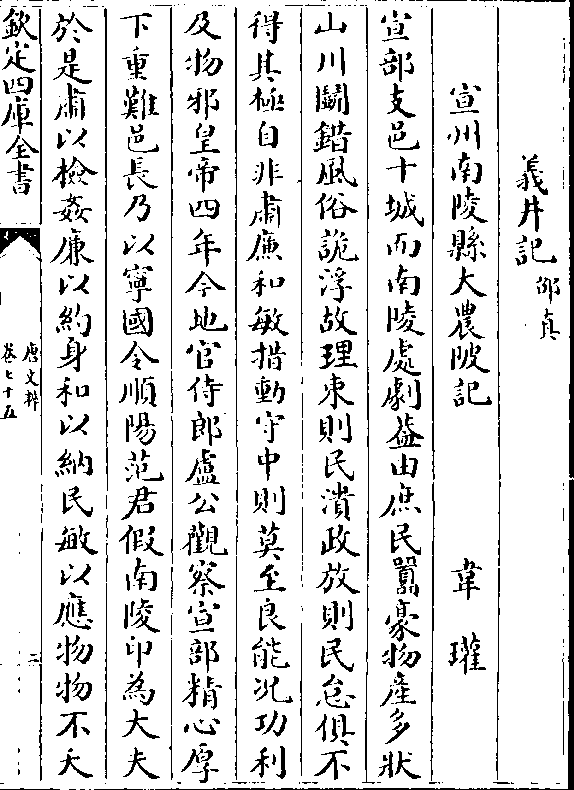 義井記 邵真
宣州南陵縣大農陂記 韋瓘
宣部支邑十城而南陵處劇葢由庶民嚚豪物產多狀
山川鬭錯風俗詭浮故理束則民潰政放則民怠俱不
得其極自非肅廉和敏措動守中則莫至良能况功利
及物邪皇帝四年今地官侍郎盧公觀察宣部精心厚
下重難邑長乃以寧國令順陽范君假南陵印為大夫
於是肅以檢姦廉以約身和以納民敏以應物物不夭
欽定四庫全書
唐文粹
卷七十五
二